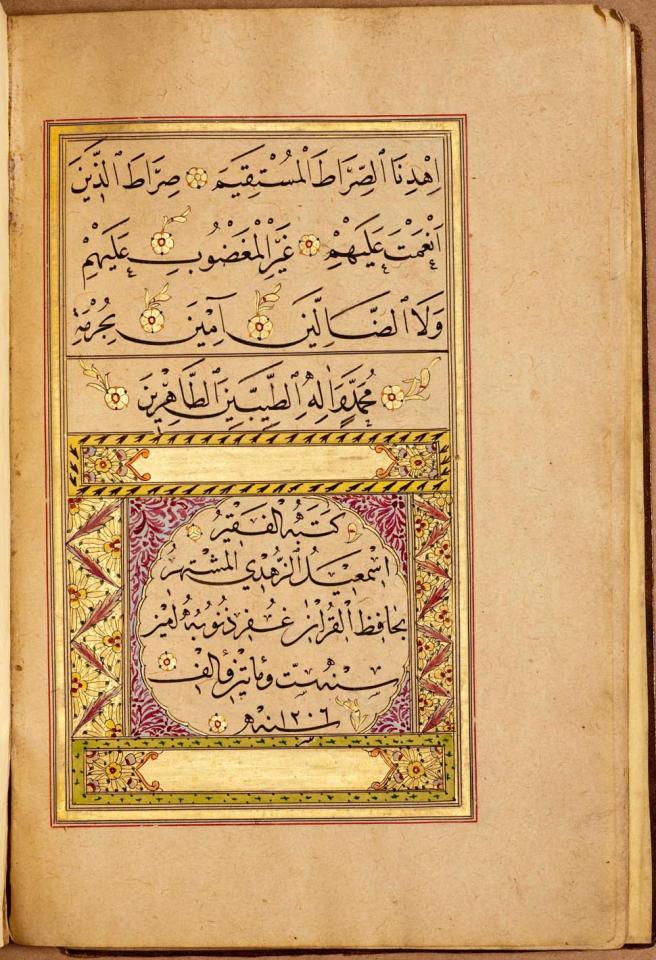 اِهْدِنَا الصِّرَاطَ الْمُسْتَقِيمَ صِرَاطَ الَّذِينَ
اَنْعَمْتَ عَلَيْهِمْ غَيْرِ الْمَغْضُوبِ عَلَيْهِمْ
وَلَا الضَّالِّينَ آمِينَ بِحُرْمَةِ
مُحَمَّدٍ وَاٰلِهِ الطَّيِّبِينَ الطَّاهِرِينَ
كَتَبَهُ الْفَقِيرُ
اِسْمٰعِيلُ الزُّهْدِي الْمُشْتَهِرُ
بِحَافِظِ الْقُرْاٰنِ غُفِرَ ذُنُوبُهُ اٰمِيْن
سِنَهْ سِتَّ وَمِأَتَيْنِ وَأَلِف
سنه ١٢٠٦